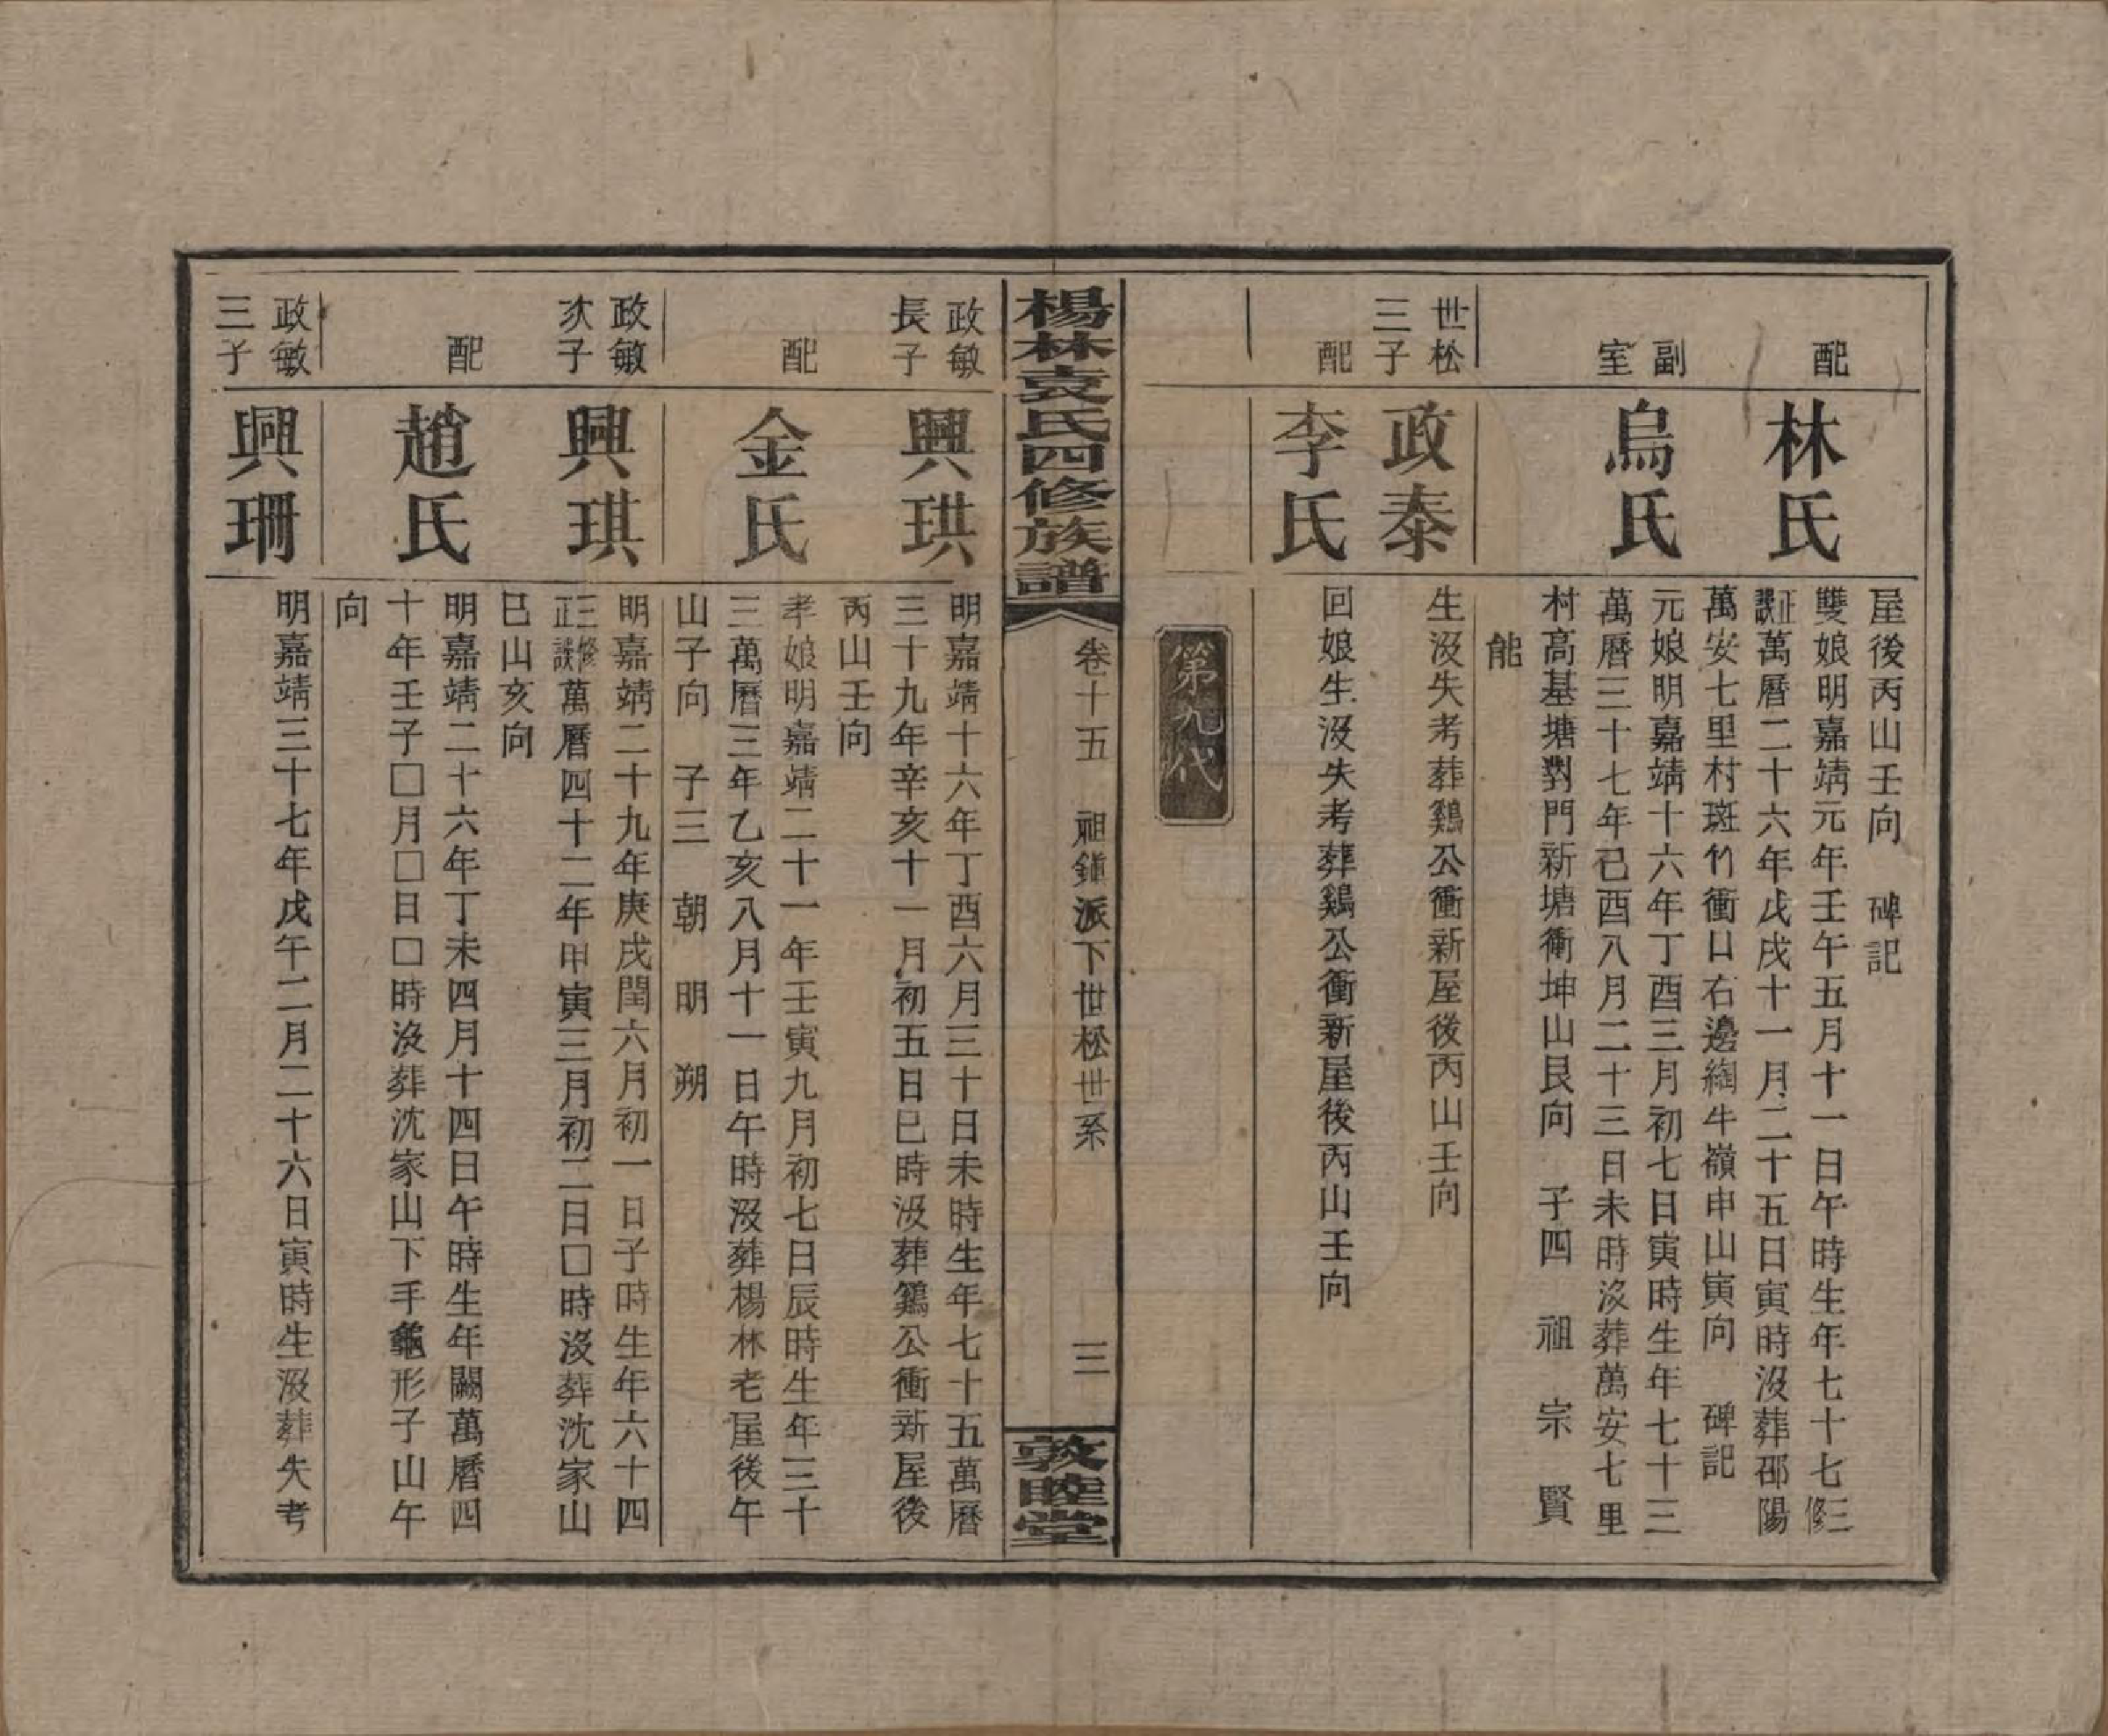 屋後丙山壬向 碑記
配
林氏
雙娘明嘉靖元年壬午五月十一日午時生年七十七三修
正誤萬曆二十六年戊戌十一月二十五日寅時沒葬邵陽
萬安七里村斑竹衝口右邊絢牛嶺申山寅向 碑記
副室
烏氏
元娘明嘉靖十六年丁酉三月初七日寅時生年七十三
萬曆三十七年己酉八月二十三日未時沒葬萬安七里
村高基塘對門新塘衝坤山艮向 子四 祖 宗 賢
能
世松三子
政泰
生沒失考葬鷄公衝新屋後丙山壬向
配
李氏
回娘生沒失考葬鷄公衝新屋後丙山壬向
第九代
楊林袁氏四修族譜
卷十五 祖鎮派下世松世系
三
敦睦堂
政敏長子
興珙
明嘉靖十六年丁酉六月三十日未時生年七十五萬曆
三十九年辛亥十一月初五日巳時沒葬鷄公衝新屋後
丙山壬向
配
金氏
孝娘明嘉靖二十一年壬寅九月初七日辰時生年三十
三萬曆三年乙亥八月十一日午時沒葬楊林老屋後午
山子向 子三 朝 明 朔
政敏次子
興琪
明嘉靖二十九年庚戌閏六月初一日子時生年六十四
三修正誤萬曆四十二年甲寅三月初二日□時沒葬沈家山
巳山亥向
配
趙氏
明嘉靖二十六年丁未四月十四日午時生年闕萬曆四
十年壬子□月□日□時沒葬沈家山下手龜形子山午
向
政敏三子
興珊
明嘉靖三十七年戊午二月二十六日寅時生沒葬失考